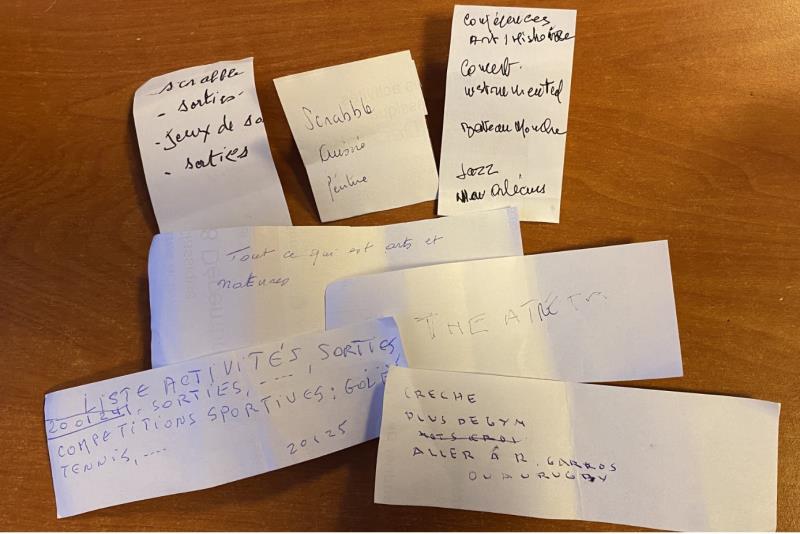 scrabble
- sorties-
- jeux de so
- sorties
Scrabbb
Cuisine
Peinture
Conférences
Art / Histoire
Concert
instrumental
Bateau Mouche
Jazz
New Orléans
Tout ce qui est arts et
natures
THEATRE
LISTE ACTIVITÉS, SORTIES
SORTIES, ----,
COMPETITIONS SPORTIVES: GOLF,
TENNIS, ....
20125
CRECHE
PLUS DE GYM
ALLER À R. GARROS
OU AU RUGBY